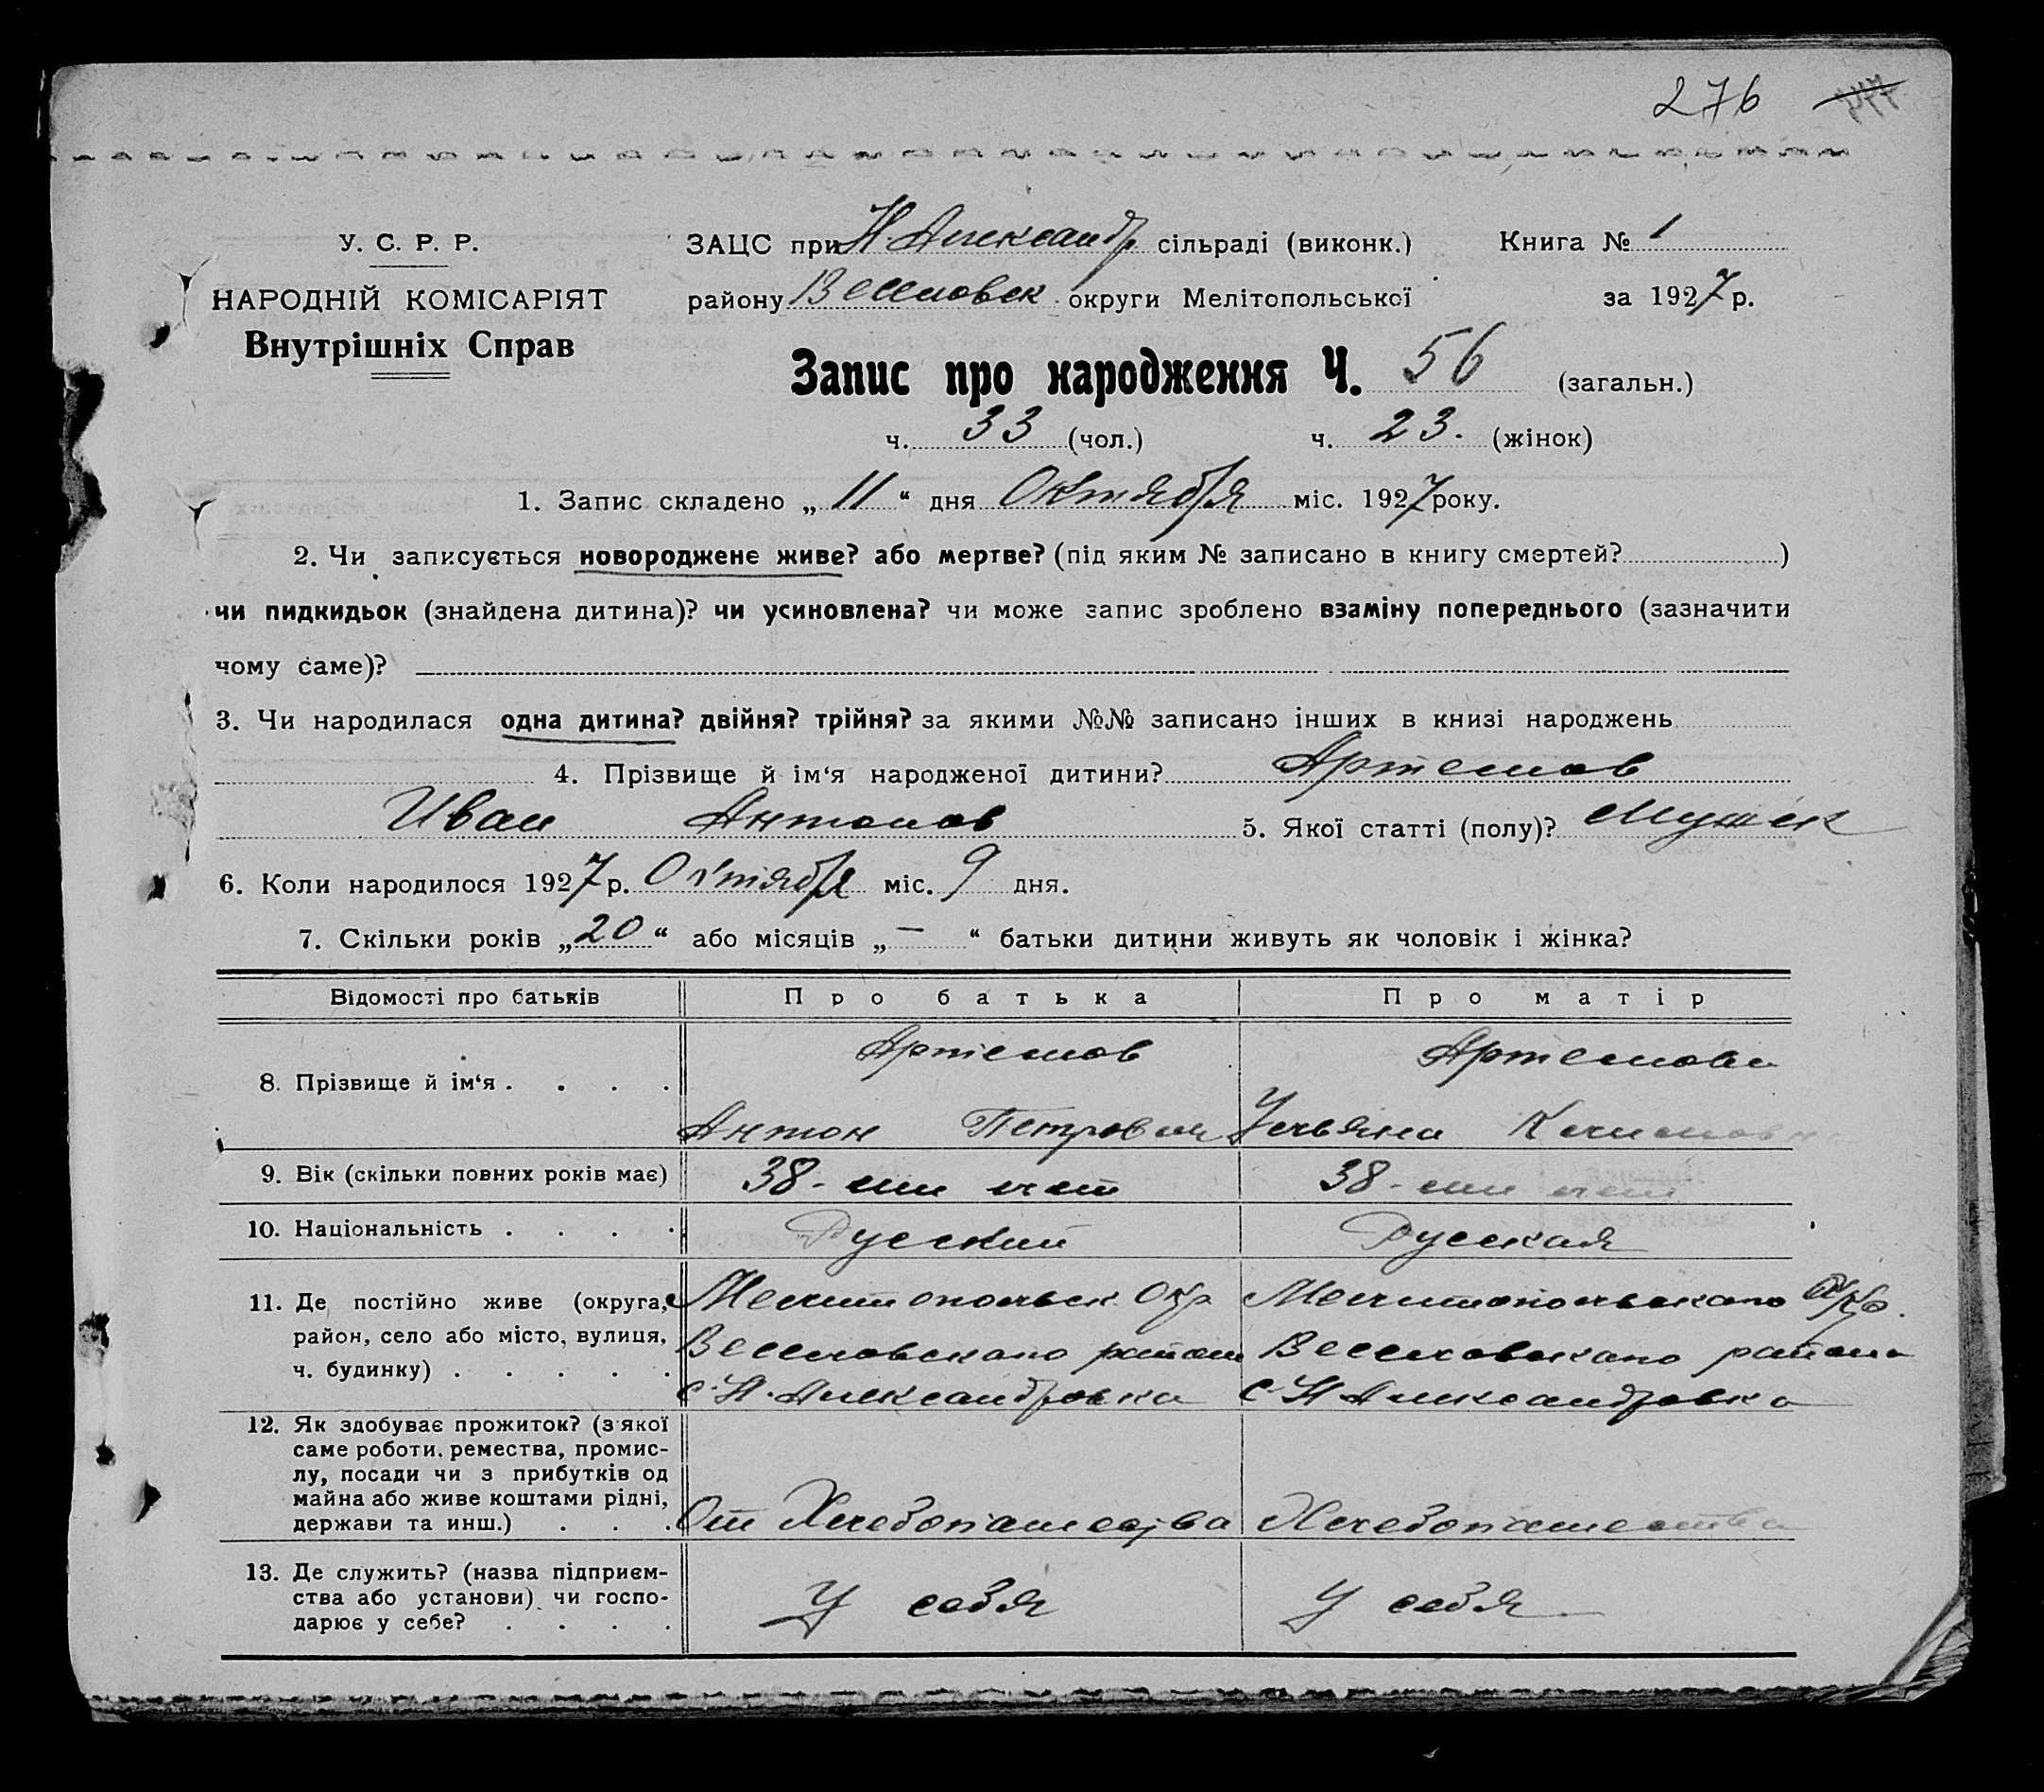 276
У. С. Р. Р.
НАРОДНІЙ КОМІСАРІЯТ
Внутрішніх Справ
ЗАЦС при Н. Александр сільраді (виконк.) Книга № 1
району Веселовск округи Мелітопольської за 1927 р.
Запис про народження Ч. 56 (загальн.)
ч. 33 (чол.) ч. 23. (жінок)
1. Запис складено „ 11 “ дня Октября міс. 1927 року.
2. Чи записується новороджене живе? або мертве? (під яким № записано в книгу смертей? )
чи пидкидьок (знайдена дитина)? чи усиновлена? чи може запис зроблено взаміну попереднього (зазначити
чому саме)?
3. Чи народилася одна дитина? двійня? трійня? за якими №№ записано інших в книзі народжень
4. Прізвище й ім‘я народженої дитини? Артемов
Иван Антонов 5. Якої статті (полу)? Мужск
6. Коли народилося 1927 р. Октября міс. 9 дня.
7. Скільки років „ 20 “ або місяців „ — “ батьки дитини живуть як чоловік і жінка?
Відомості про батьків Про батька Про матір
8. Прізвище й ім‘я . . . .
Артемов
Антон Петрович
Артемова
Ульяна
9. Вік (скільки повних років має) 38-ми лет 38-ми лет
10. Національність . . . . Русский Русская
11. Де постійно живе (округа,
район, село або місто, вулиця,
ч. будинку) . . . . .
Мелитопольск Окр
Веселовского района
с. Н. Александровка
Мелитопольского Окр.
Веселовского района
с. Н Александровка
12. Як здобуває прожиток? (з якої
саме роботи, ремества, промис-
лу, посади чи з прибутків од
майна або живе коштами рідні,
держави та инш.) . . .
От Хлебопашества
Хлебопашества
13. Де служить? (назва підприєм-
ства або установи) чи госпо-
дарює у себе? . . . .
У себя
У себя